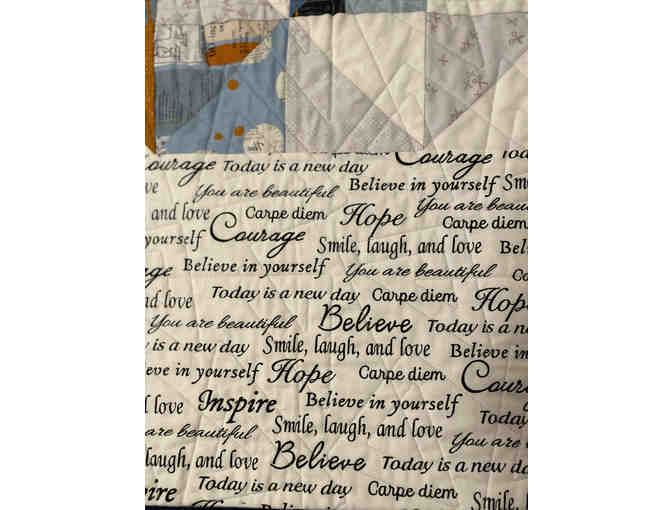 Courage Today
ourage Today is a new day
You are beautiful Believe in yourself Sm
and love Carpe diem Hope You are beau
Carpe diem
yourself Courage Smile, laugh, and love Bel
ge Believe in yourself You are beautiful Ca
nd love Today is a new day Carpe diem Hop
You are beautiful Believe Today is a n
is a new day Smile, laugh, and love Believe in
e in yourself Hope Carpe diem Cour
love Inspire Believe in yourself Today
are beautiful Smile, laugh, and love You are
laugh, and love Believe Today is a new d
pire Today is a new day Carpe diem Smile, l